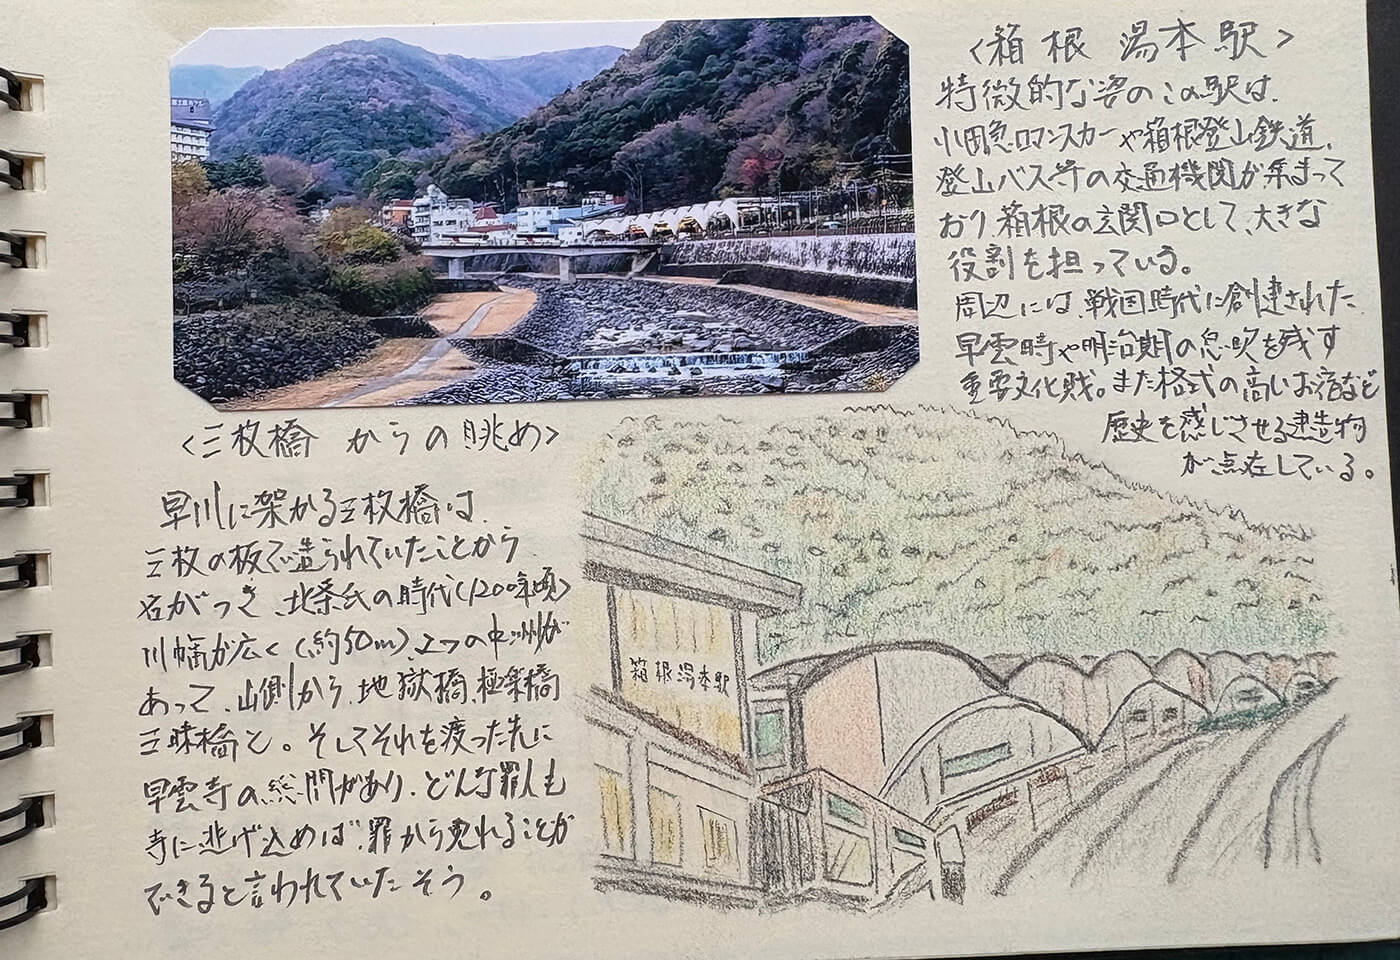 <箱根 湯本駅>
特徴的な姿のこの駅は、
小田急ロマンスカーや箱根登山鉄道、
登山バス等の交通機関が集まって
おり、箱根の玄関口として、大きな
役割を担っている。
周辺には、戦国時代に創建された
早雲時や明治期の息吹を残す
重要文化財。また格式の高いお宿など
歴史を感じさせる建造物
が点在している。
<三枚橋 からの眺め>
早川に架かる三枚橋は、
三枚の板で造られていたことから
名がつき、北条氏の時代(1200年頃)
川幅が広く(約50m)、2つの中洲が
あって、山側から、地獄橋、極楽橋
三昧橋と。そしてそれを渡った先に
早雲寺の総門があり、どんな罪人も
寺に逃げ込めば、罪から免れることが
できると言われていたそう。
箱根湯本駅